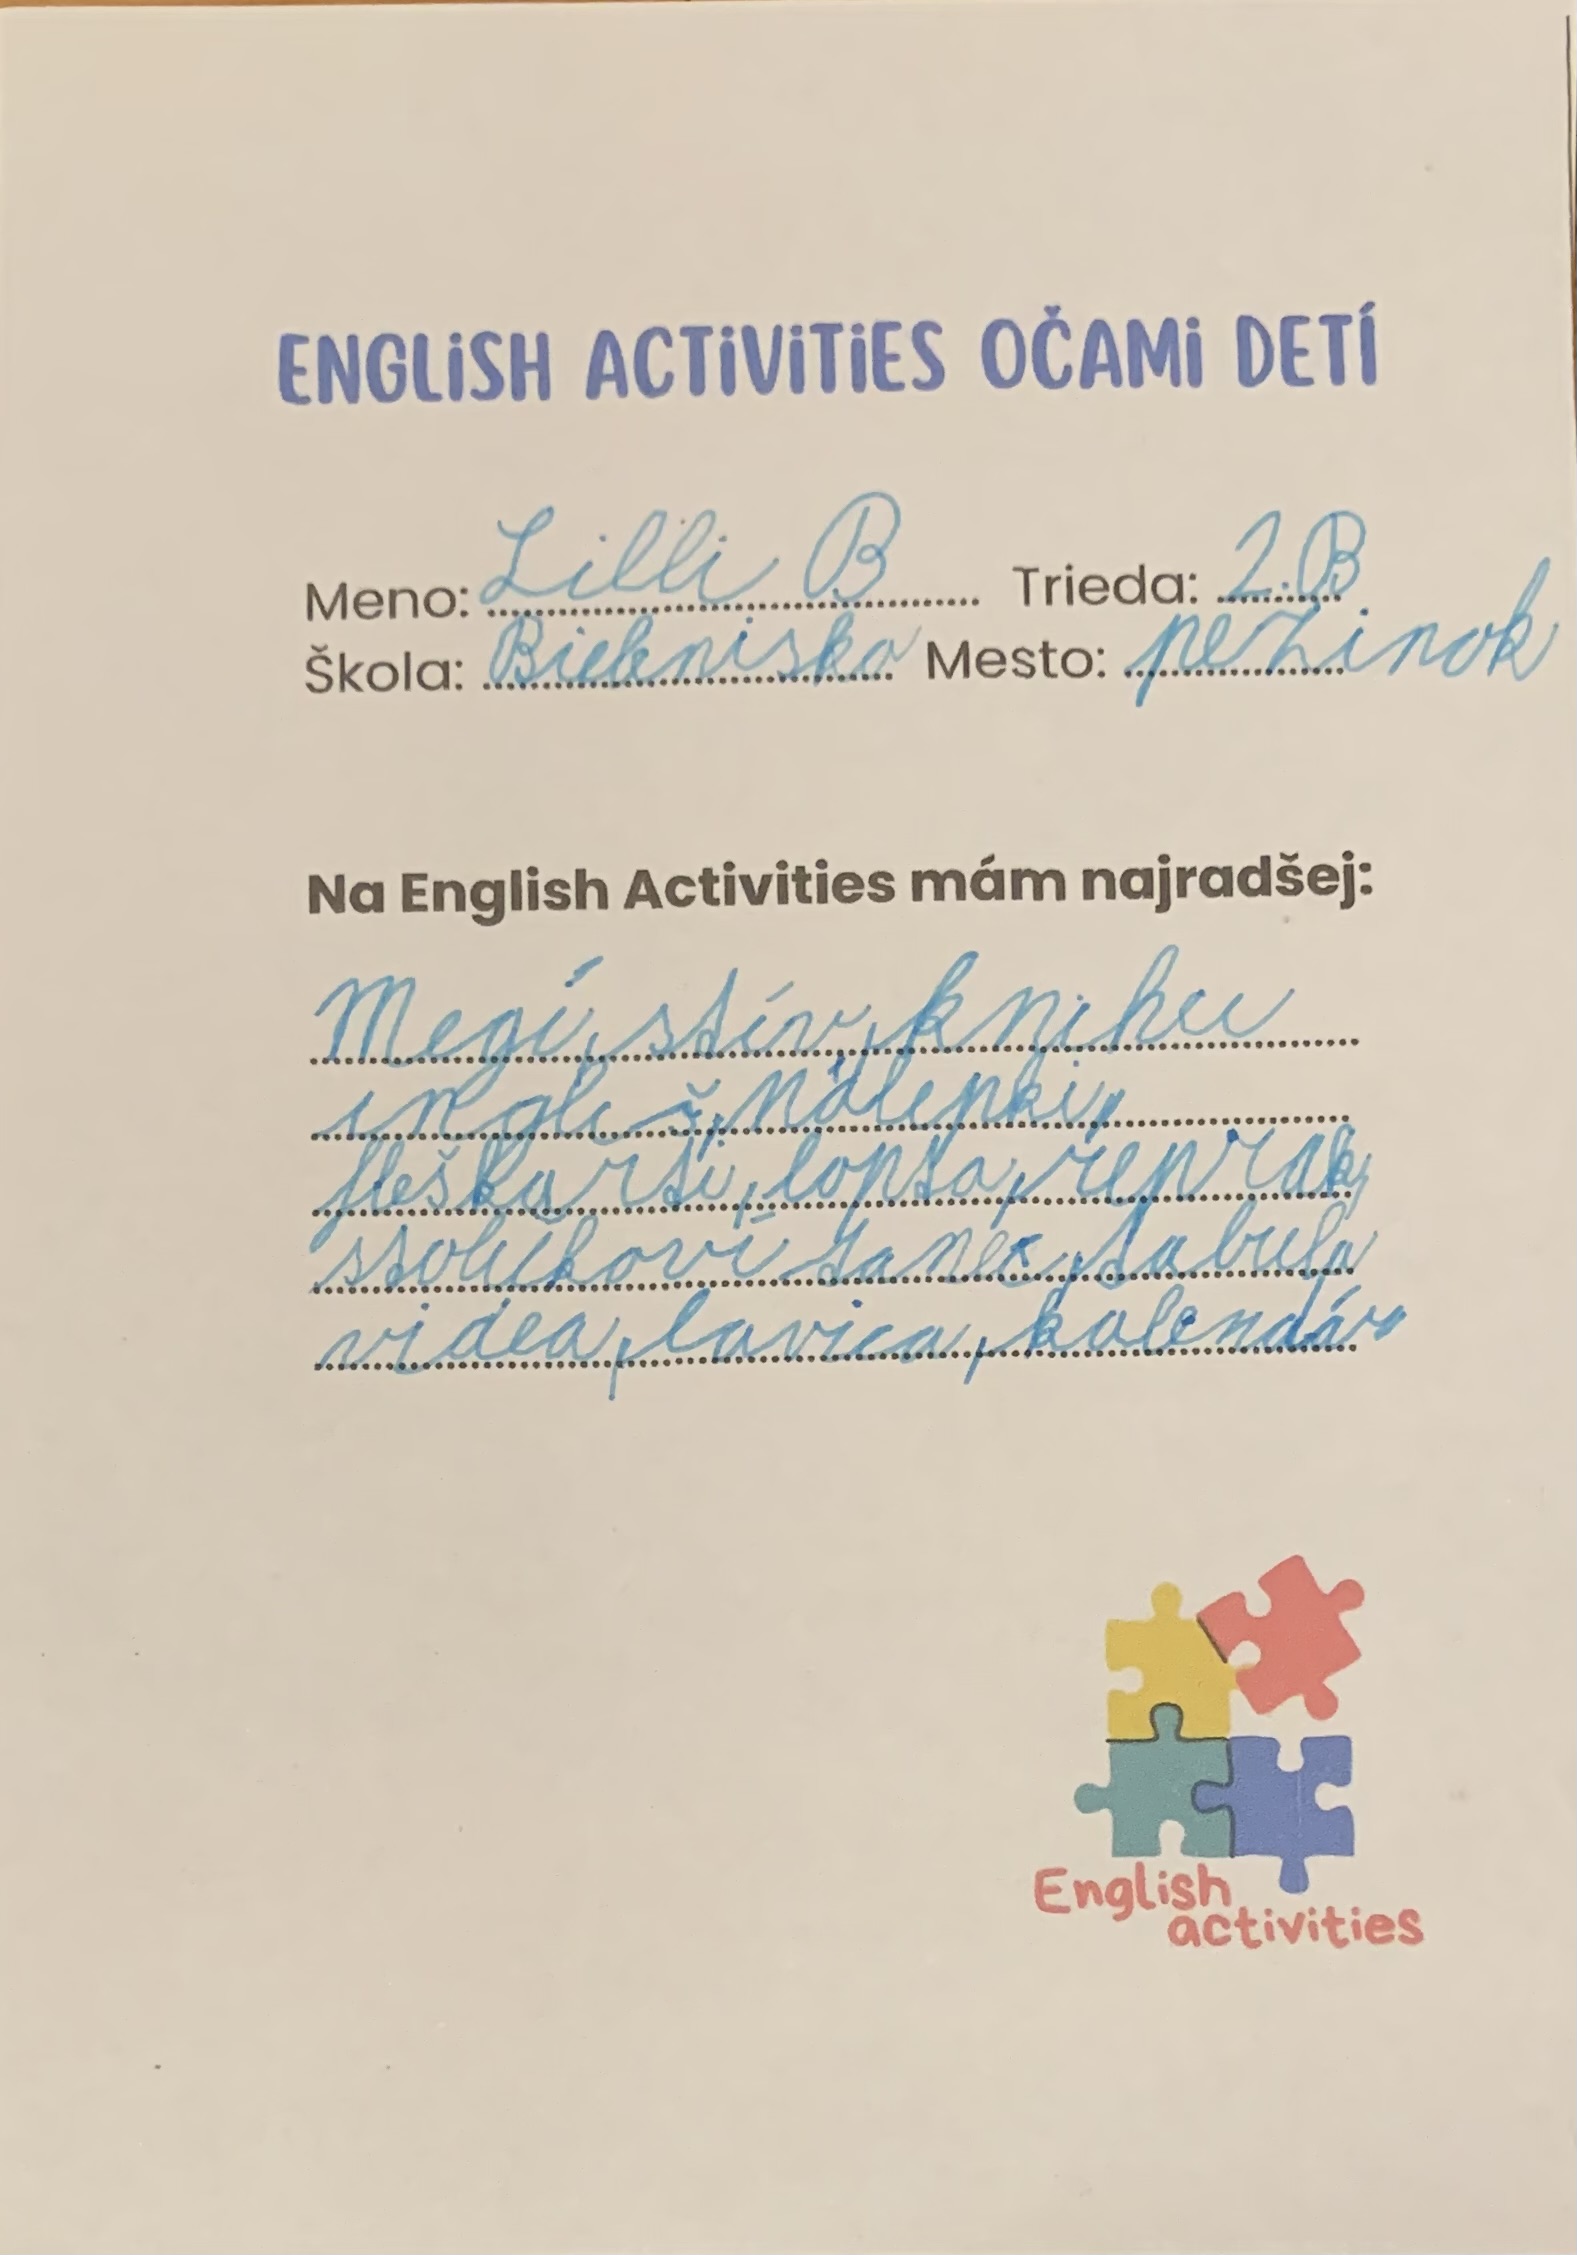 ENGLiSH ACTiViTiES OČAMi DETÍ
Meno: Lilli B Trieda: 2.B
Škola: Bielenisko Mesto: peZinok
Na English Activities mám najradšej:
Megí, stív, knihu
ingliš, Nálepki,
fleškarti, lopta, réprák,
stoličkoví tanec, tabula
videa, lavica, kalendár
English
activities